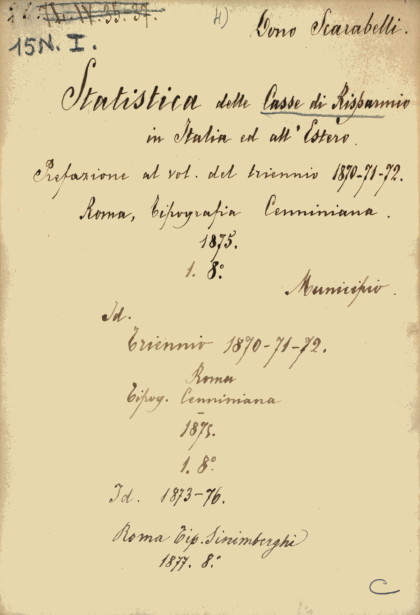 4)
Dono Scarabelli.
15 N. I.
Statistica delle Casse di Risparmio
in Italia ed all'Estero.
Prefazione al vol. del triennio 1870-71-72.
Roma, Tipografia Cenniniana.
1875.
1. 8°.
Municipio.
Id.
Triennio 1870-71-72.
Roma
Tipog. Cenniniana
1875.
1. 8°.
Id. 1873-76.
Roma Tip. Sinimberghi
1877. 8°.
C